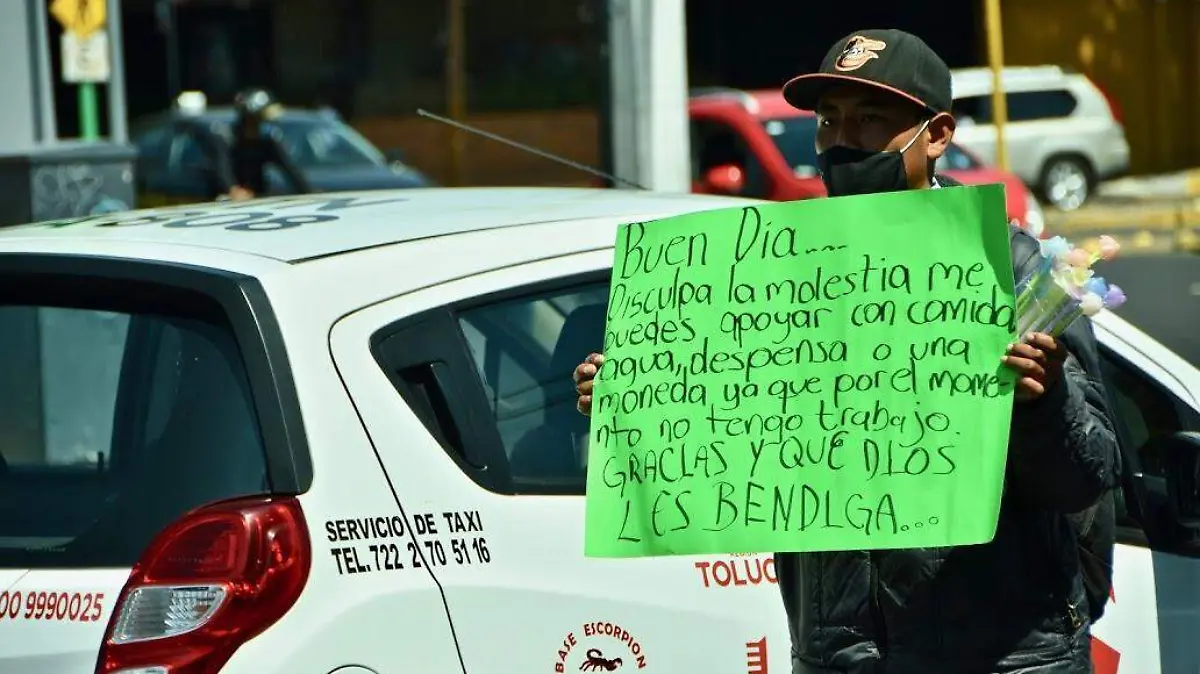 Buen Dia....
Disculpa la molestia me
puedes apoyar con comida
agua, despensa o una
moneda ya que por el mome-
nto no tengo trabajo.
GRACIAS Y QUE DIOS
LES BENDIGA...
808
SERVICIO DE TAXI
TEL. 722 2 70 51 16
00 9990025
TOLUC
BASE ESCORPION